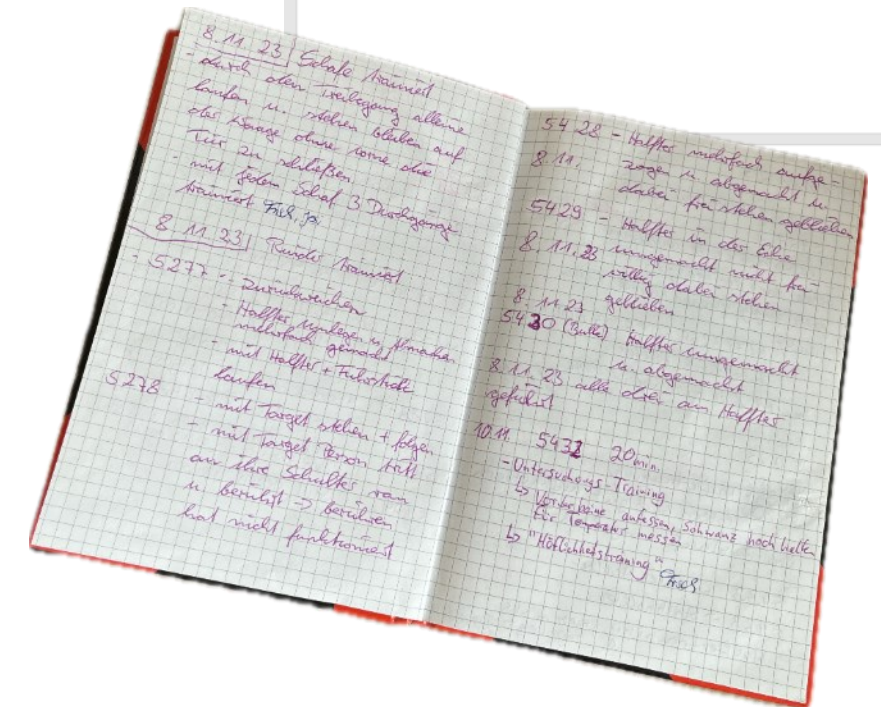 8.11.23 | Schafe trainiert
- durch den Treibegang alleine
laufen u. stehen bleiben auf
der Waage ohne vorne die
Tür zu schließen.
- mit jedem Schaf 3 Durchgänge
trainiert
8.11.23 | Rinder trainiert
- 5277 - zurückweichen
- Halfter umlegen u. Abmachen
mehrfach gemacht
- mit Halfter + Führstrick
laufen
5278
- mit Target stehen + folgen
- mit Target Person tritt
an ihre Schulter ran
u. berührt => berühren
hat nicht funktioniert
5428 - Halfter mehrfach aufge-
8.11. zogen u. abgemacht u.
dabei frei stehen geblieben
5429 - Halfter in der Ecke
8.11.23 umgemacht nicht frei-
willig dabei stehen
geblieben
8.11.23
5430 (Bulle) Halfter umgemacht
u. abgemacht
8.11.23 alle drei am Halfter
geführt
10.11. 5431 20min.
- Untersuchungs-Training
↳ Vorderbeine anfassen, Schwanz hoch halten
für Temperatur messen
↳ "Höflichkeitstraining"